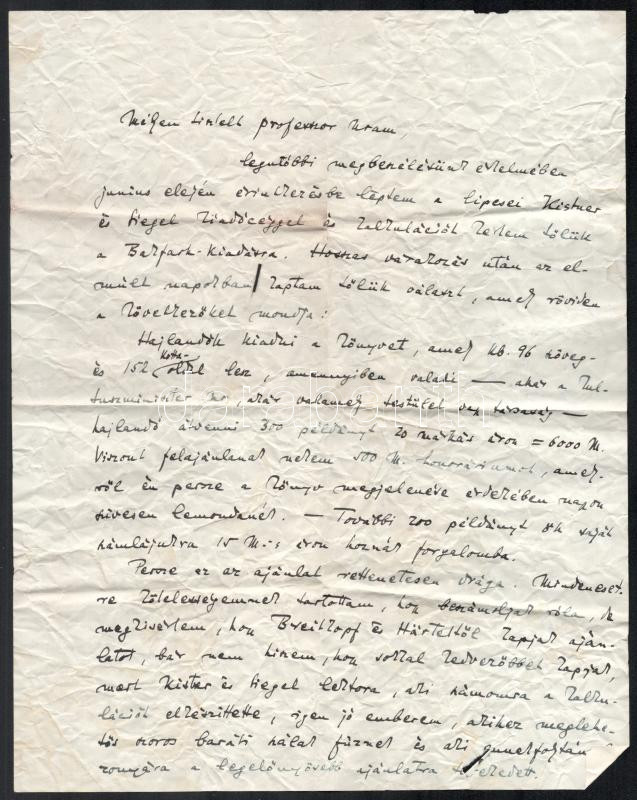 Mélyen tisztelt professor Uram,
legutóbbi megbeszélésünk értelmében
junius elején érintkezésbe léptem a lipcsei Kistner
és Siegel kiadócéggel és kalkulációt kértem tőlük
a Bakfark-kiadásra. Hosszas várakozás után az el-
mult napokban kaptam tőlük választ, amely röviden
a következőket mondja:
Hajlandók kiadni a könyvet, amely kb. 96 szöveg-
és 152 kotta-
oldal lesz, amennyiben valaki — akár a Kul-
tuszminiszter úr, akár valamely testület vagy társaság —
hajlandó átvenni 300 példányt 20 márkás áron = 6000 M.
Viszont felajánlanak nekem 500 M. honoráriumot, amely-
ről én persze a könyv megjelenése érdekében nagyon
szivesen lemondanék. — További 200 példányt ők saját
számlájukra 15 M.-s áron hoznák forgalomba.
Persze ez az ajánlat rettenetesen drága. Mindeneset-
re kötelességemnek tartottam, hogy beszámoljak róla, de
megkisérlem, hogy Breitkopf és Härteltől kapjak aján-
latot, bár nem hiszem, hogy sokkal kedvezőbbet kapjak,
mert Kistner és Siegel lektora, aki számomra a kalku-
lációt elkészittette, igen jó emberem, akihez meglehe-
tős szoros baráti szálak fűznek és aki ennélfogván
bizonyára a legelőnyösebb ajánlatra törekedett.